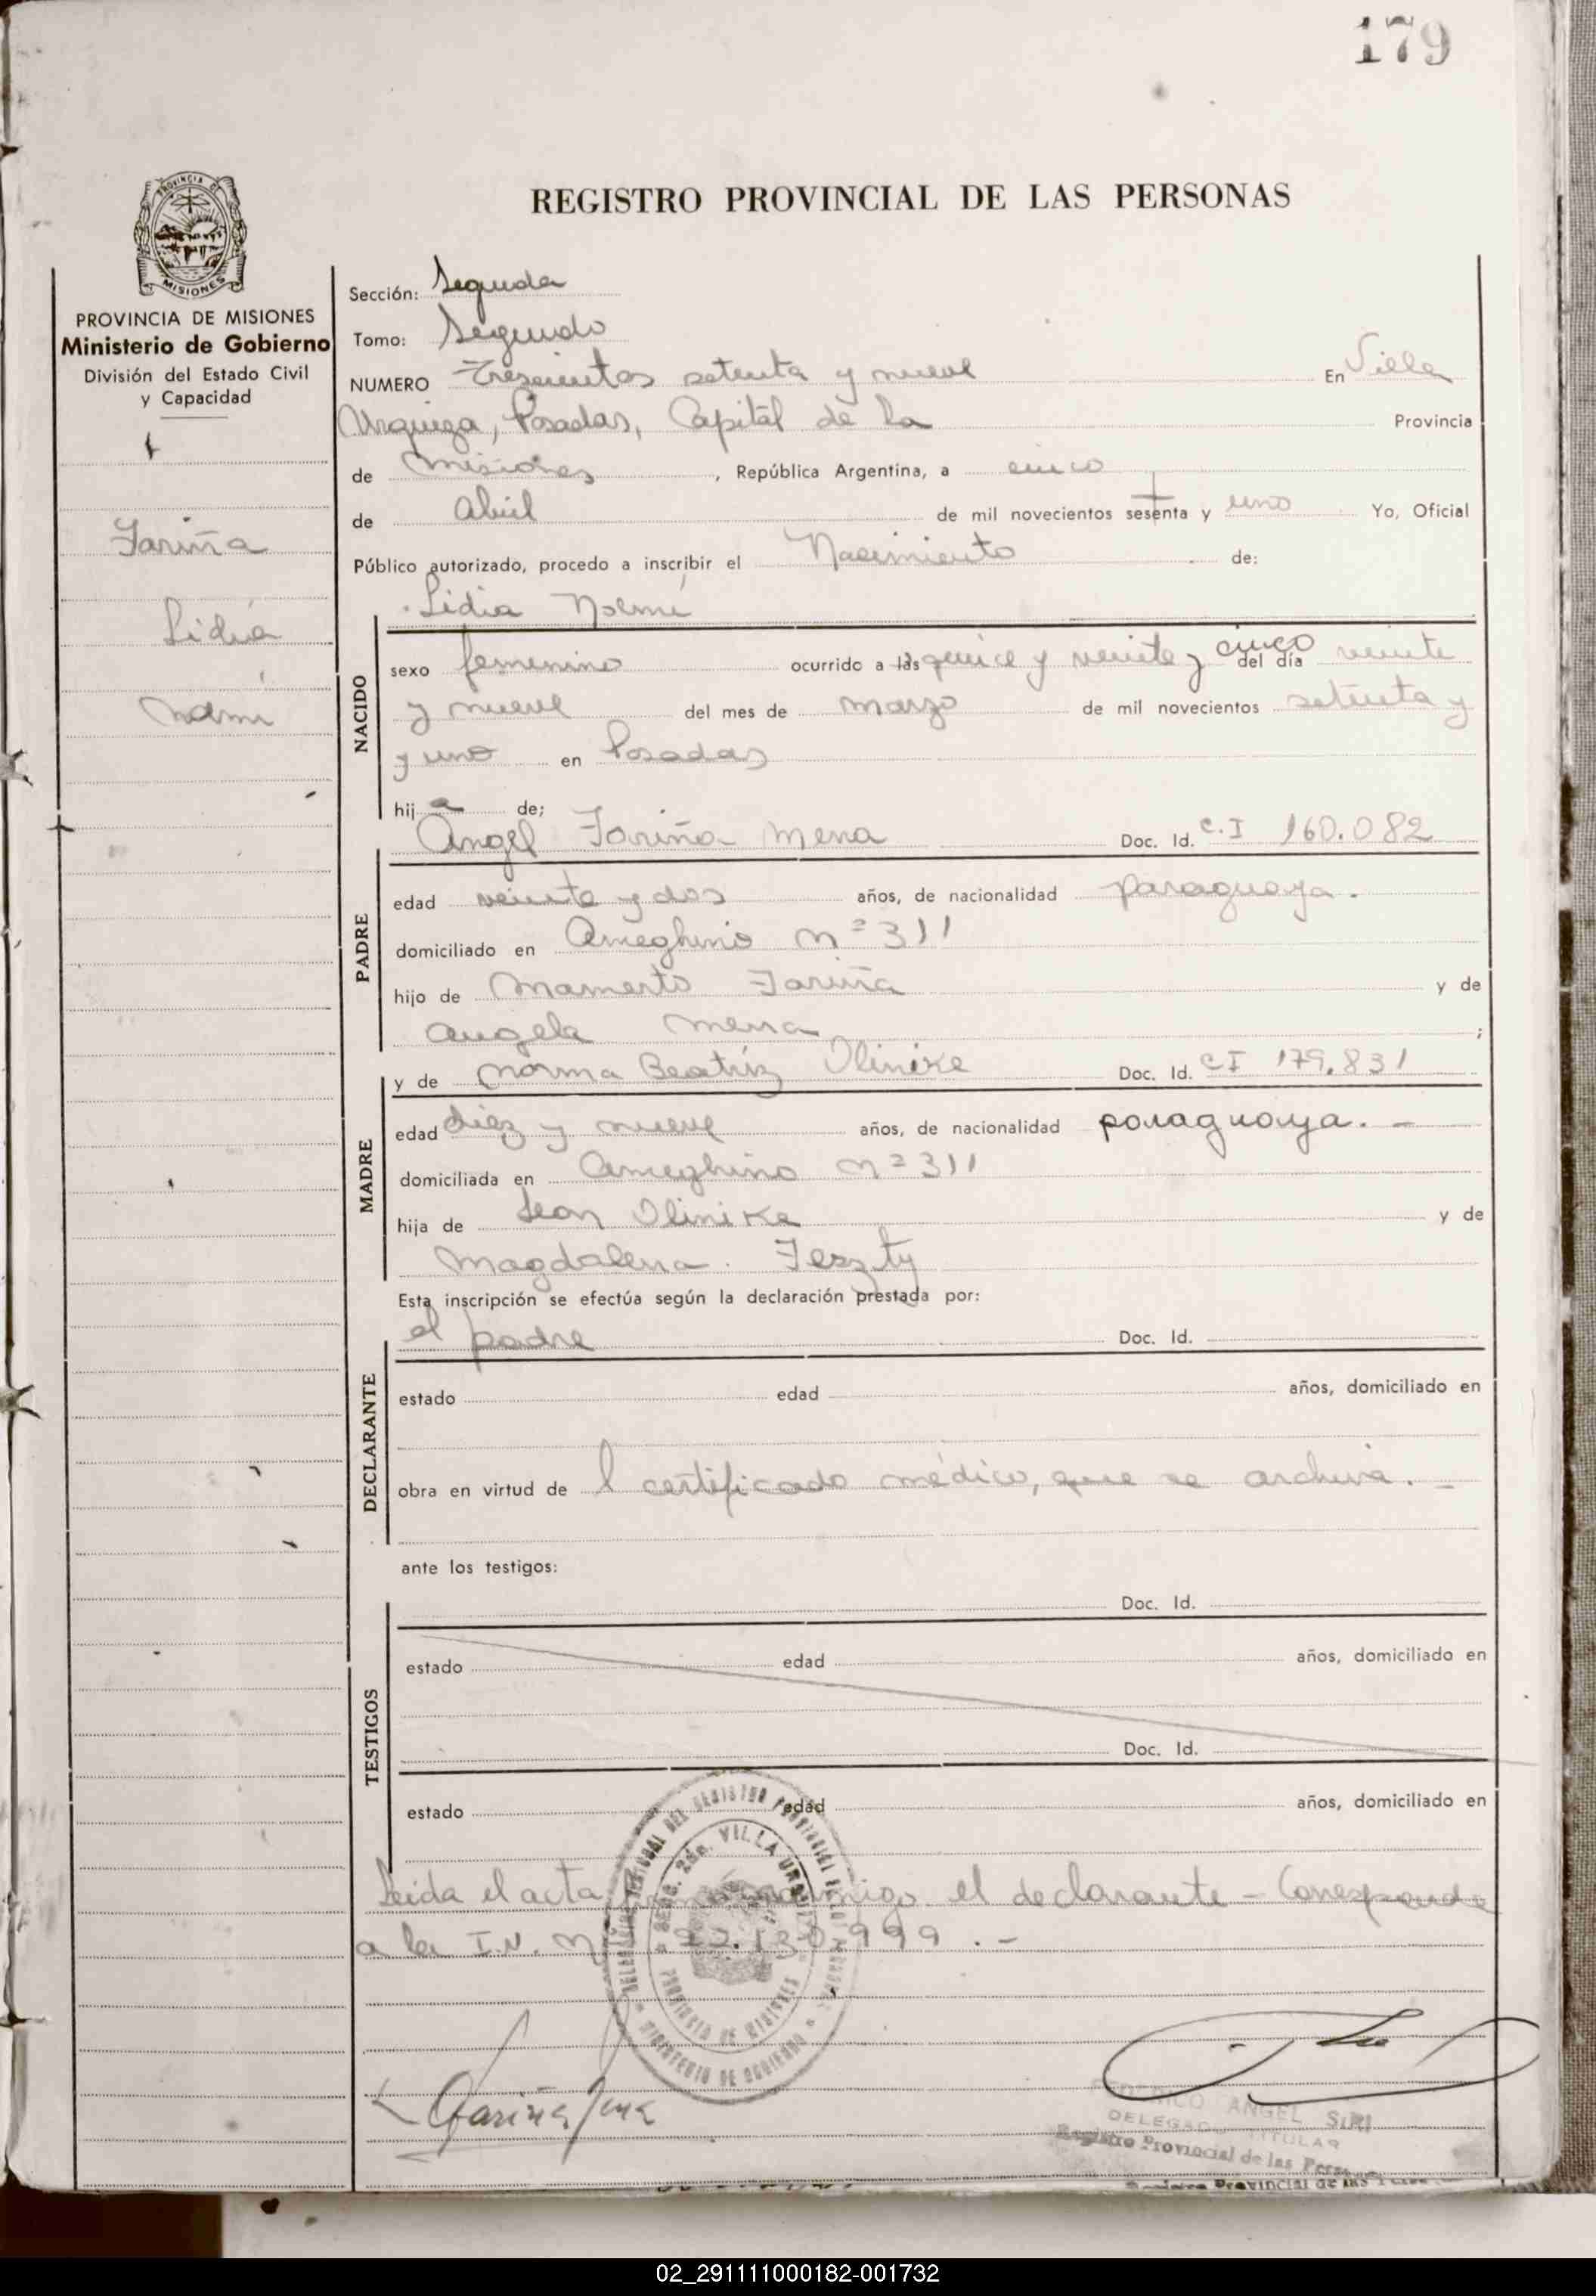 179
PROVINCIA DE
MISIONES
REGISTRO PROVINCIAL DE LAS PERSONAS
PROVINCIA DE MISIONES
Ministerio de Gobierno
División del Estado Civil
y Capacidad
Fariña
Lidia
Noemí
Sección: Segunda
Tomo: Segundo
NUMERO Trescientos setenta y nueve En Villa
Urquiza, Posadas, Capital de la Provincia
de Misiones, República Argentina, a cinco
de Abril de mil novecientos sesenta y uno Yo, Oficial
Público autorizado, procedo a inscribir el Nacimiento de:
Lidia Noemí
NACIDO
sexo femenino ocurrido a las quince y veinte y cinco del día veinte
y nueve del mes de marzo de mil novecientos setenta y
y uno en Posadas
hij a de;
Angel Fariña Mena Doc. Id. C.I 160.082
PADRE
edad veinte y dos años, de nacionalidad paraguaya.
domiciliado en Ameghino nº 311
hijo de Mamerto Fariña y de
Angela Mena ;
y de Norma Beatríz Olinike Doc. Id. CI 179.831
MADRE
edad diez y nueve años, de nacionalidad paraguaya. -
domiciliada en Ameghino nº 311
hija de Leon Olinike y de
Magdalena. Feszty
Esta inscripción se efectúa según la declaración prestada por:
el padre Doc. Id.
DECLARANTE
estado edad años, domiciliado en
obra en virtud de l certificado médico, que se archiva. -
ante los testigos:
Doc. Id.
TESTIGOS
estado edad años, domiciliado en
Doc. Id.
estado edad años, domiciliado en
Leida el acta, conmigo el declarante - Corresponde
a la I.N. Nº 22.130.999. -
SECC. 2da. VILLA URQUIZA
PROVINCIA DE MISIONES
MINISTERIO DE GOBIERNO
Fariña Mena
ANGEL SIRI
DELEGADO TITULAR
Registro Provincial de las Personas
Registro Provincial de las
02_291111000182-001732